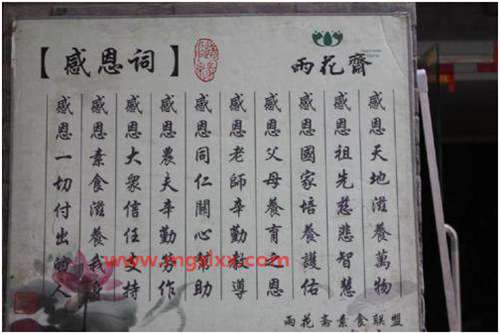 【感恩词】
雨花齋
感恩天地滋養萬物
感恩祖先慈悲智慧
感恩國家培養護佑
感恩父母養育之恩
感恩老師辛勤教導
感恩同仁關心幫助
感恩農夫辛勤勞作
感恩大眾信任支持
感恩素食滋養我
感恩一切付出的人
www.mgxlxx.com
雨花斋素食联盟